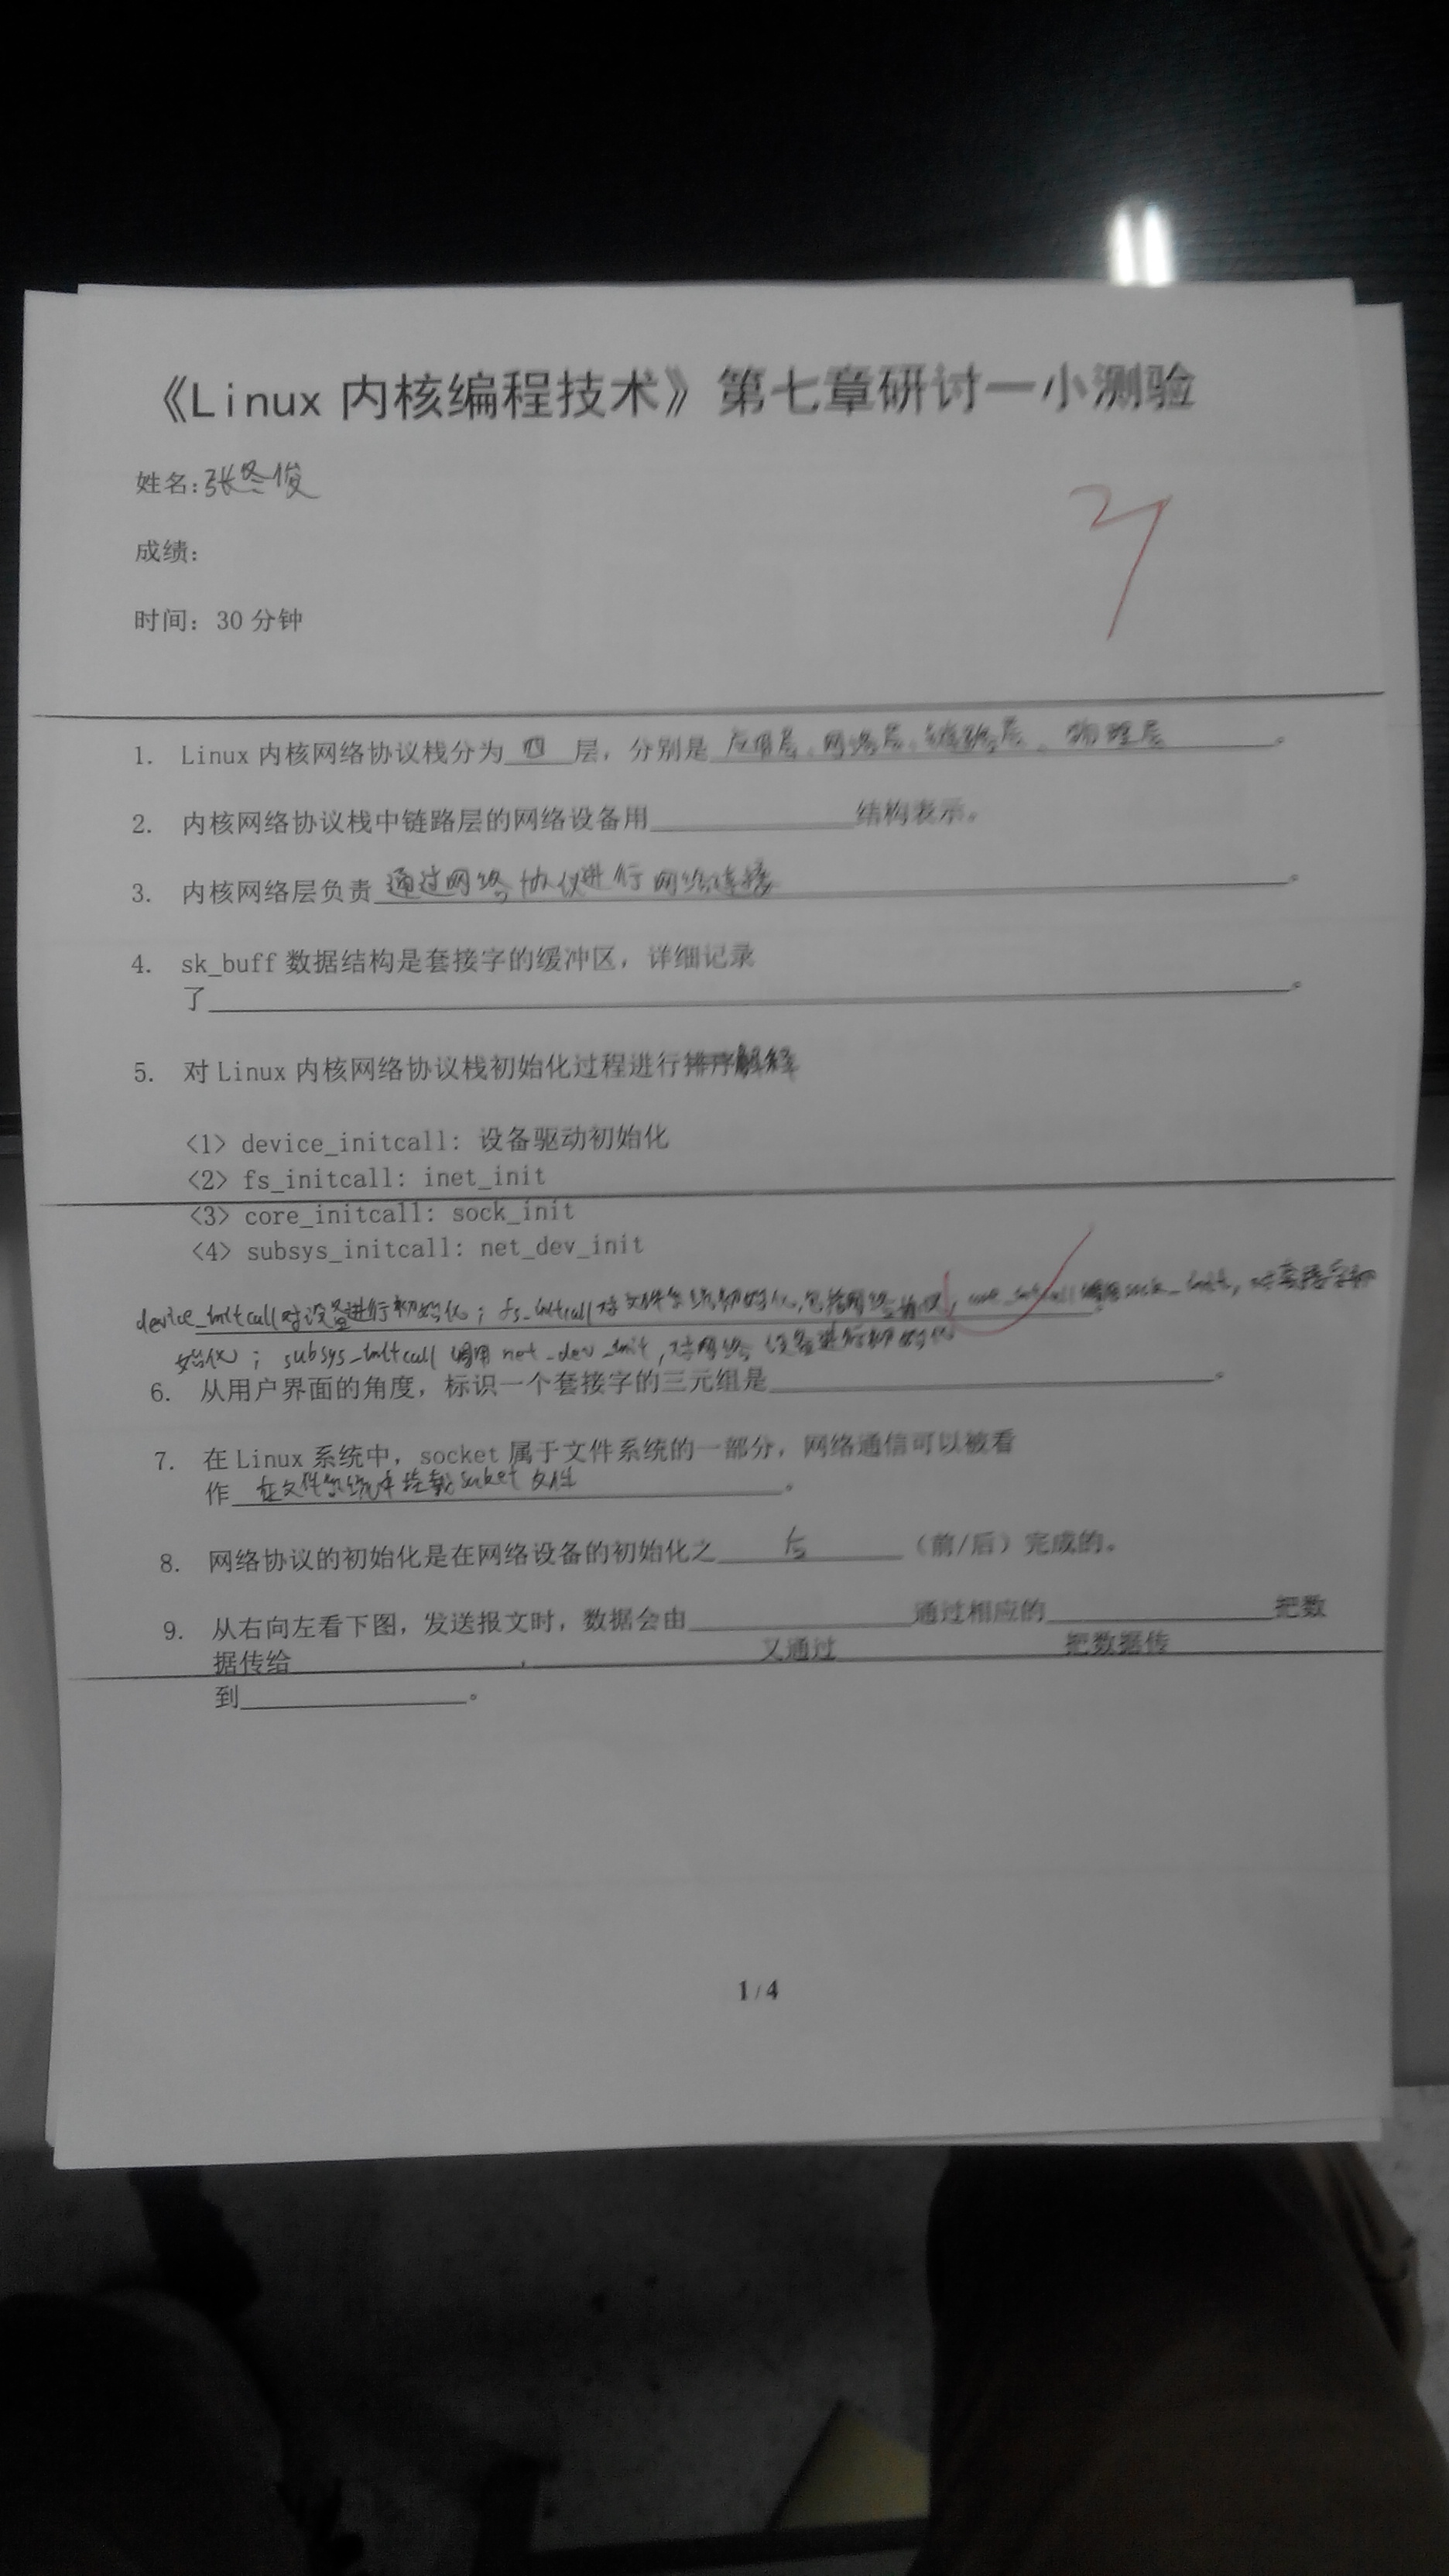 《Linux 内核编程技术》第七章研讨一小测验
姓名:张冬俊
7
成绩:
时间: 30 分钟
1. Linux 内核网络协议栈分为 四 层，分别是 应用层、网络层、链路层、物理层 。
2. 内核网络协议栈中链路层的网络设备用 结构表示。
3. 内核网络层负责 通过网络协议进行网络连接 。
4. sk_buff 数据结构是套接字的缓冲区，详细记录
了 。
5. 对 Linux 内核网络协议栈初始化过程进行排序解释
<1> device_initcall: 设备驱动初始化
<2> fs_initcall: inet_init
<3> core_initcall: sock_init
<4> subsys_initcall: net_dev_init
device_initcall对设备进行初始化；fs_initcall对文件系统初始化,包括网络协议；core_initcall调用sock_init，对套接字初
始化；subsys_initcall 调用 net_dev_init，对网络设备进行初始化
6. 从用户界面的角度，标识一个套接字的三元组是 。
7. 在 Linux 系统中，socket 属于文件系统的一部分，网络通信可以被看
作 在文件系统中挂载socket文件 。
8. 网络协议的初始化是在网络设备的初始化之 后 （前/后）完成的。
9. 从右向左看下图，发送报文时，数据会由 通过相应的 把数
据传给 ， 又通过 把数据传
到 。
1/4